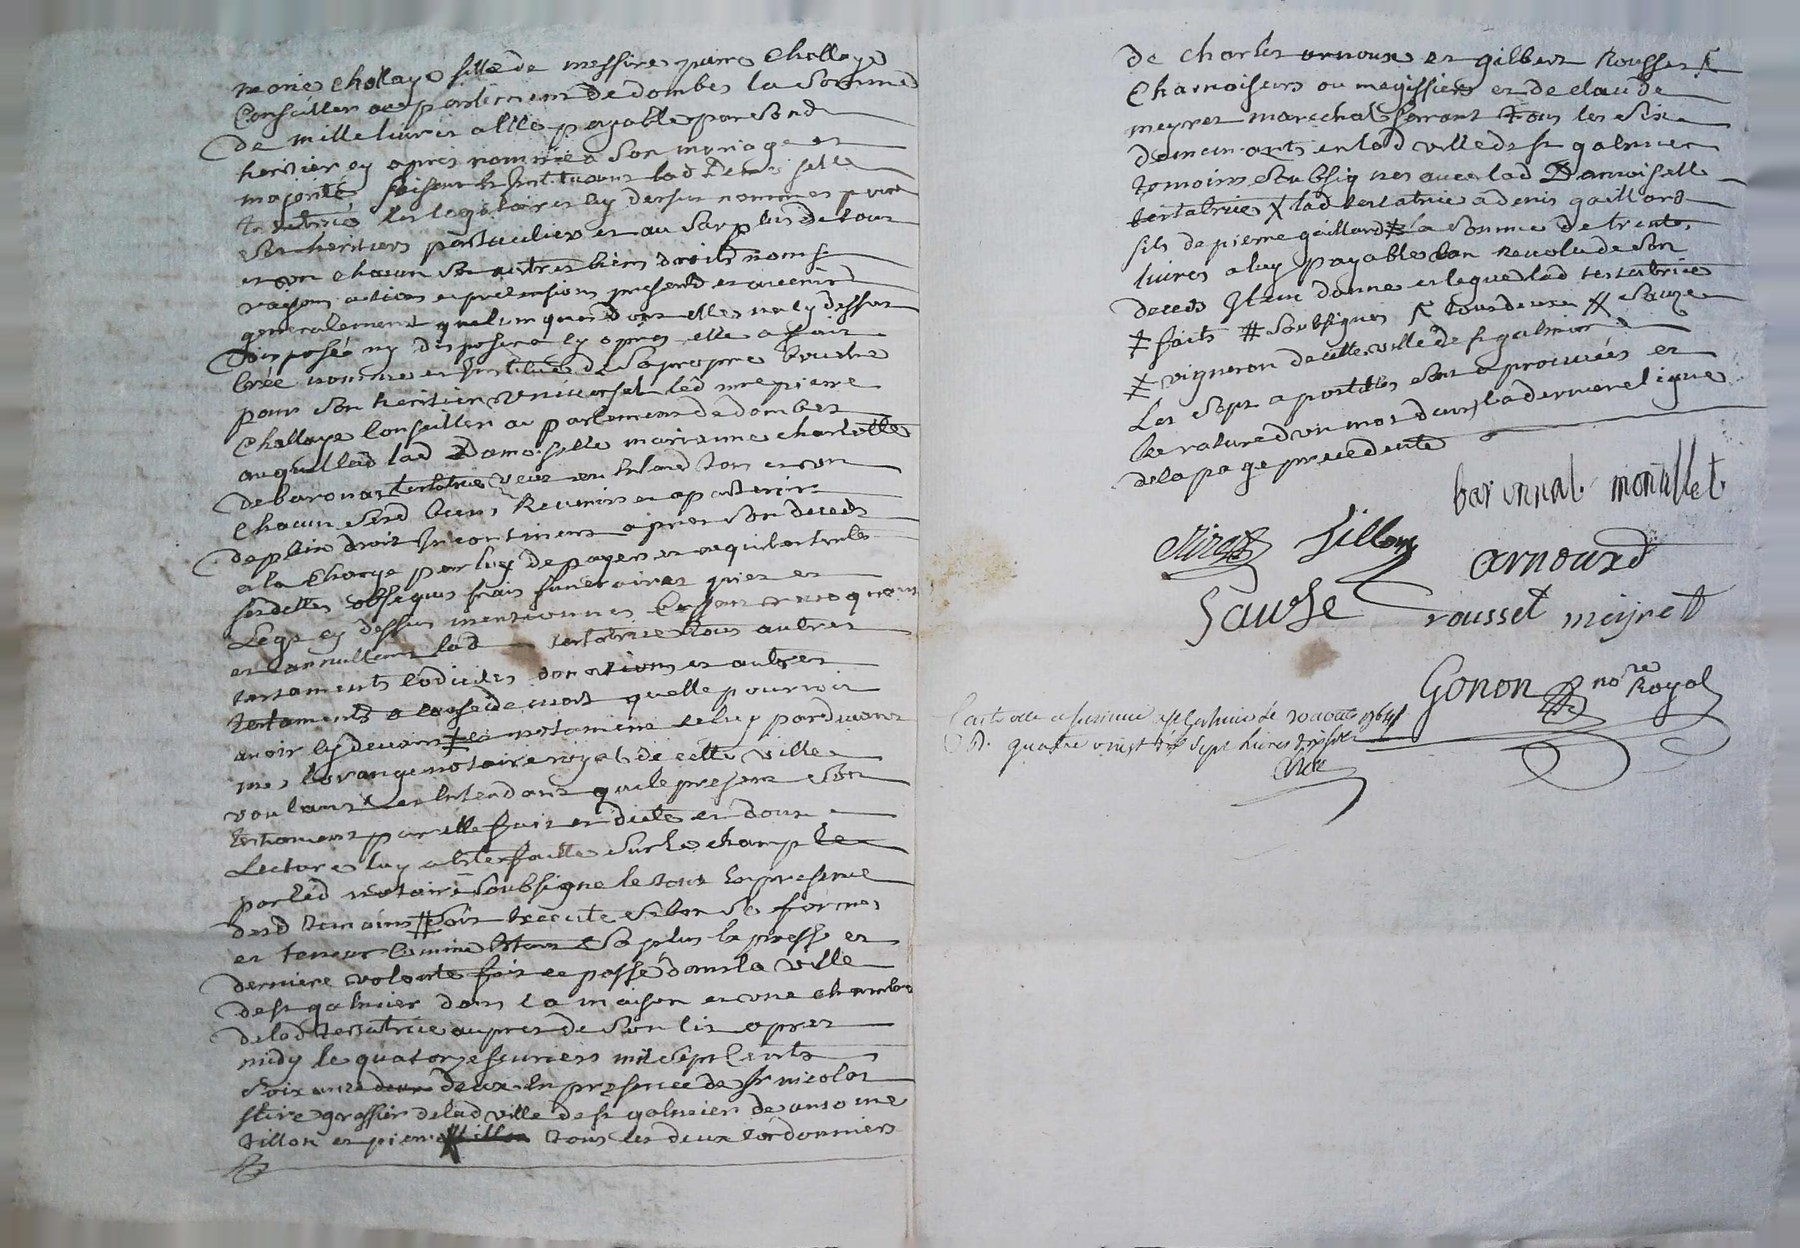 marie Chollaye fille de messire pierre Chollaye
Conseiller au parlement de dombes la somme
de mille livres a elle payable par sond
heritier cy apres nommé a son mariage et
majorité faisant et Instituant lad Demoiselle
testatrice les legataires cy dessus nommes pour
ses heritiers particuliers et au surplus de tous
et un chacun ses autres biens droits noms
raisons actions et pretensions presents et avenirs
generalement quelumques dont elle na cy dessus
disposé ny disposera cy apres elle a fait
créé nommé et Institué de sa propre bouche
pour son heritier universel led mre pierre
Chollaye Conseiller au parlement de dombes
auquel lad Damoiselle marianne charlotte
de baronat testatrice veut en tend tous et un
chacun sesd biens Revenir et apartenir
de plein droit Incontinent apres son deceds
a la charge par luy de payer et aquiter toutes
ses dettes obseques frais funeraires et
Legs cy dessus mentionnés Cassant revoquant
et annullant lad testatrice tous autres
testaments Codiciles donations et autres
testaments a cause de mort quelle pourroit
avoir cy devant ‡ notament celuy pardevant
me Lorange notaire royal de cette ville
voulant et Intendant que le present son
testament par elle fait et dicté et dont
Lecture luy a été faitte sur le champ
par led notaire soubsigne le tout En presence
desd temoins # soit executé selon sa forme
et teneur comme etant sa plus Expresse et
derniere volonté fait et passé dans la ville
de st galmier dans la maison et une chambre
de lad testatrice aupres de son lit apres
midy le quatorze fevrier mil sept Cents
soixante deux En presence de sr nicolas
greffier de lad ville de st galmier de antoine
tillon et pierre tous les deux cordonniers
de charles arnoux et gilbert Rousset
Chamoiseurs ou megissiers et de claude
meyret marechal ferrant tous les six
demeurants en lad ville de st galmier
temoins soubsignes avec lad Damoiselle
testatrice X lad testatrice a denis gaillard
fils de pierre gaillard ‡ la somme de trente
livres a luy payable lan revolu de son
deceds Item donne et legue lad testatrice
‡ faits # soubsignes tous deux X sauze
‡ vigneron de cette ville de st galmier
Les sept apostilles sont aprouvées et
la rature dun mot dans la derniere ligne
de la page precedente
baronnat montillet
Tillon
arnoux
Sauze
rousset meyret
Gonon nore Royal
Controllé et insinué a st Galmier Le 20 aoust 1764
quatre vingt sept livres